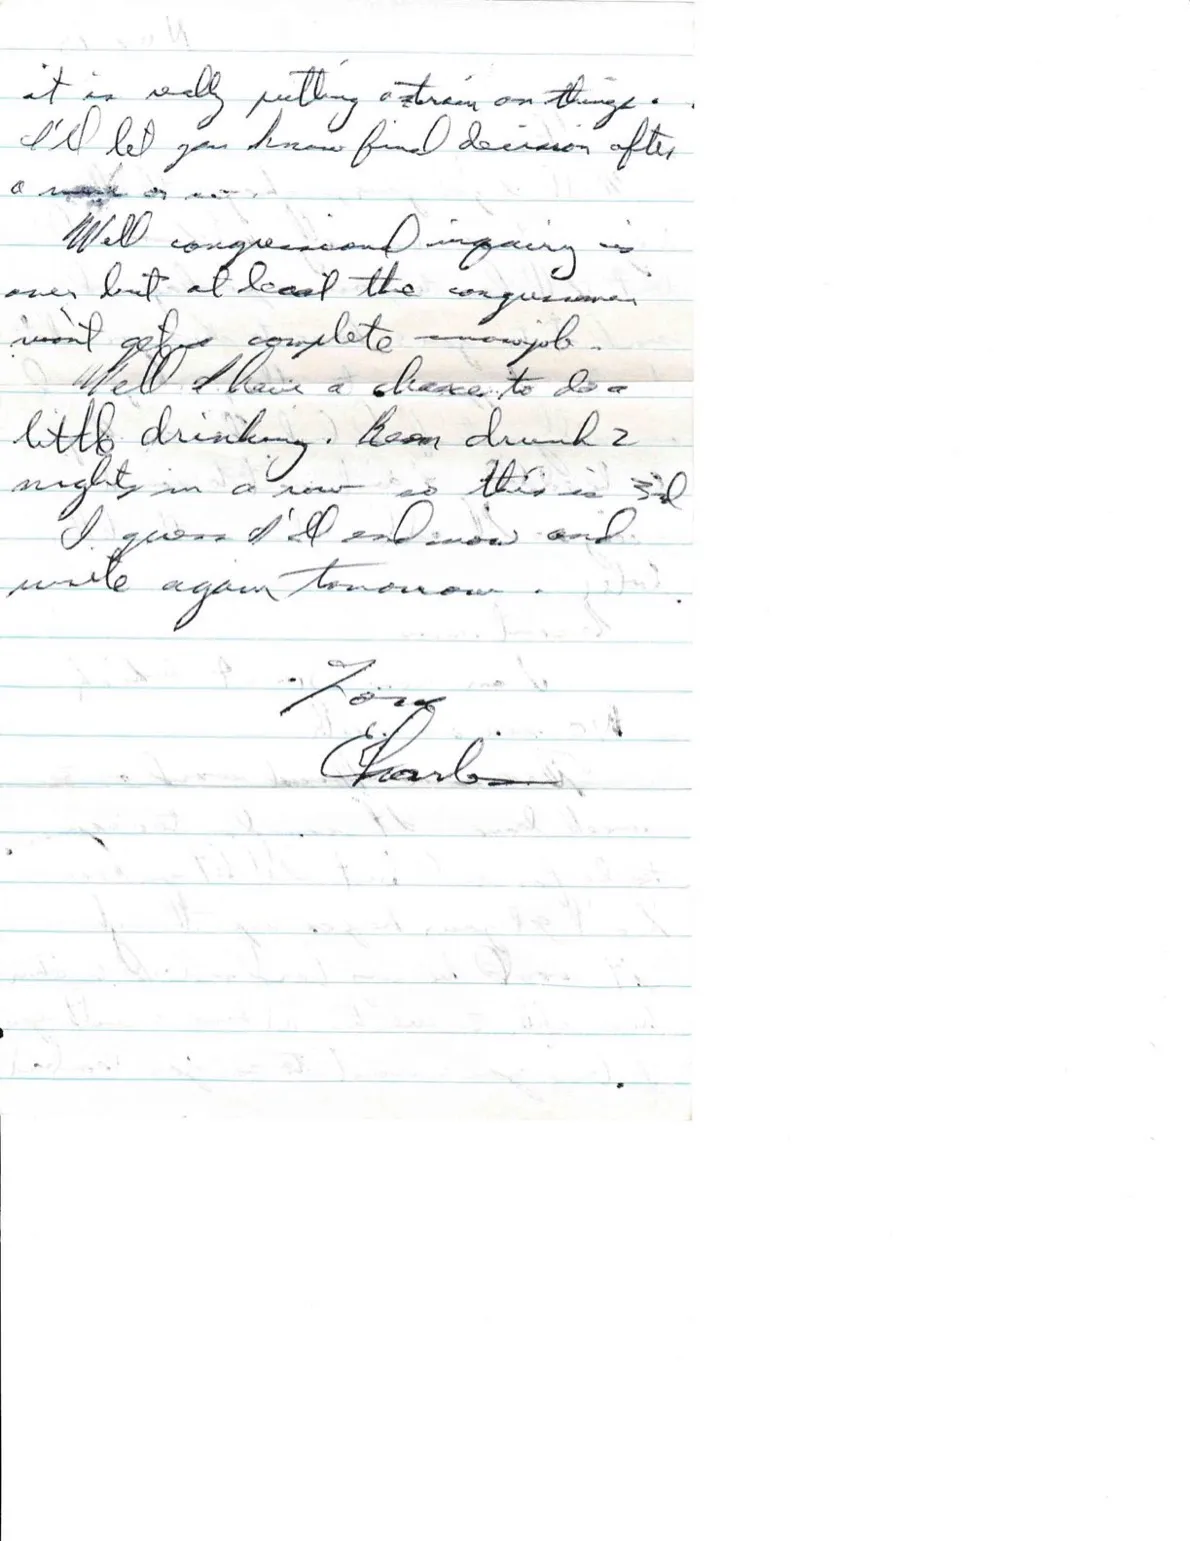 it is really putting a strain on things.
I'll let you know final decision after
a week or so.
Well congressional inquiry is
over but at least the congressmen
won't get a complete snowjob.
Well I have a chance to do a
little drinking. Been drunk 2
nights in a row so this is 3rd
I guess I'll end now and
write again tomorrow.
Love
Charlie